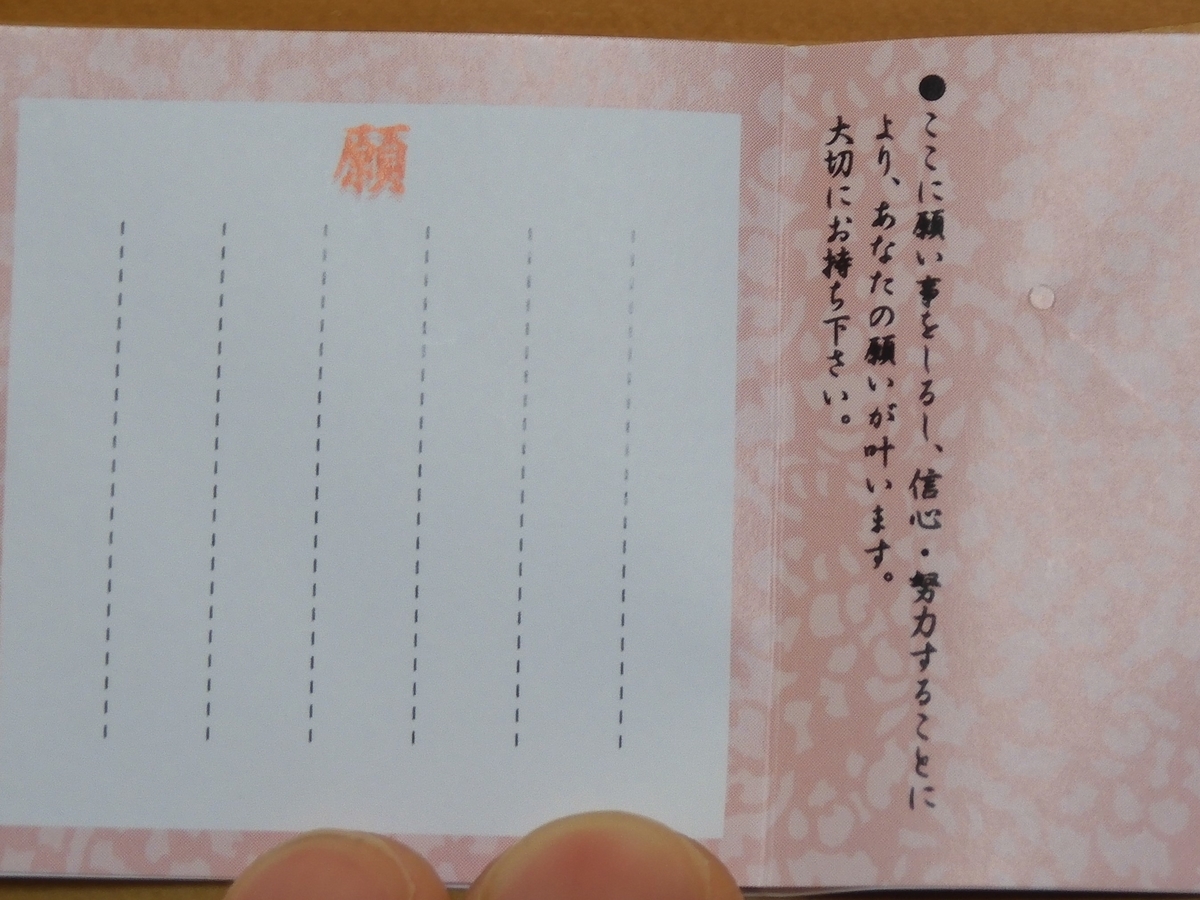 ●ここに願い事をしるし、信心・努力することに
より、あなたの願いが叶います。
大切にお持ち下さい。
願